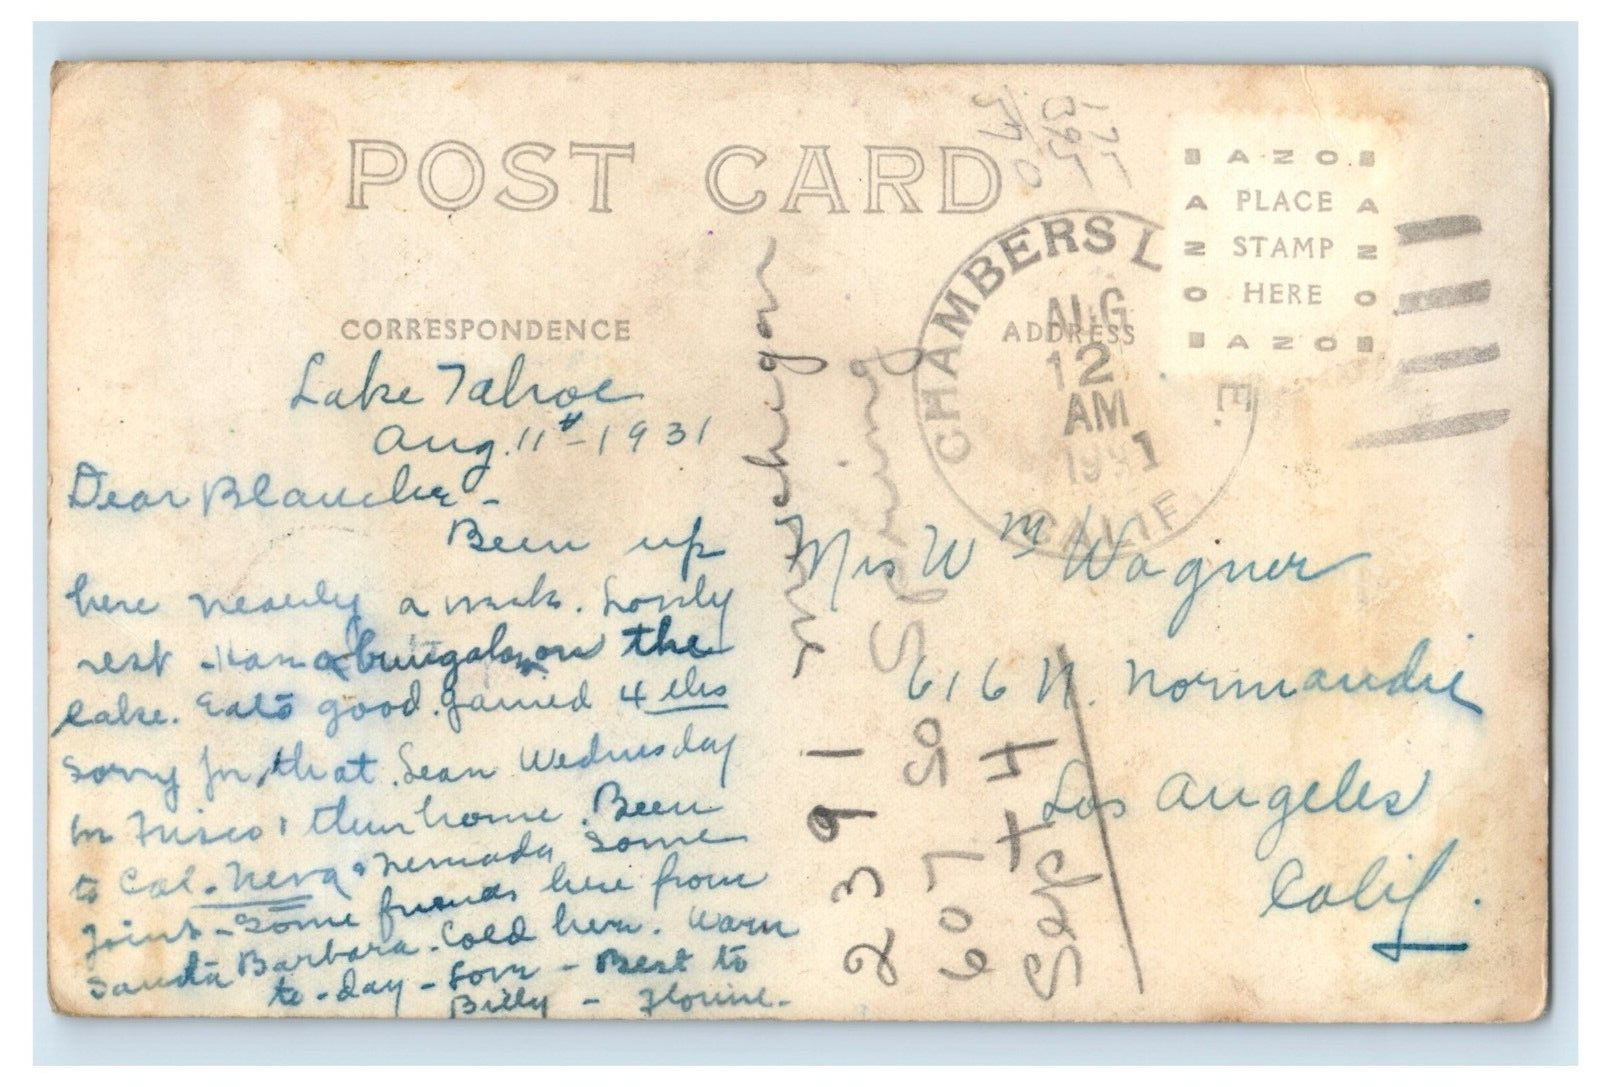 POST CARD
CORRESPONDENCE
ADDRESS
AZO
PLACE
STAMP
HERE
AZO
CHAMBERS L E.
AUG
12
AM
1931
CALIF.
Lake Tahoe
Aug. 11th - 1931
Dear Blanche -
Been up
here nearly a week. Lovely
rest - Have a bungalow on the
lake. Eats good. Gained 4 lbs
Sorry for that. Wednesday
in Frisco, then home. Been
to Cal-Neva & Nevada some
joint - Some friends here from
Santa Barbara. Cold here. Warm
to-day - Love - Best to
Billy - Florine -
Mrs Wm Wagner
616 N. Normandie
Los Angeles
Calif.
Michegan
Spring
2391
607 50
Sept 4